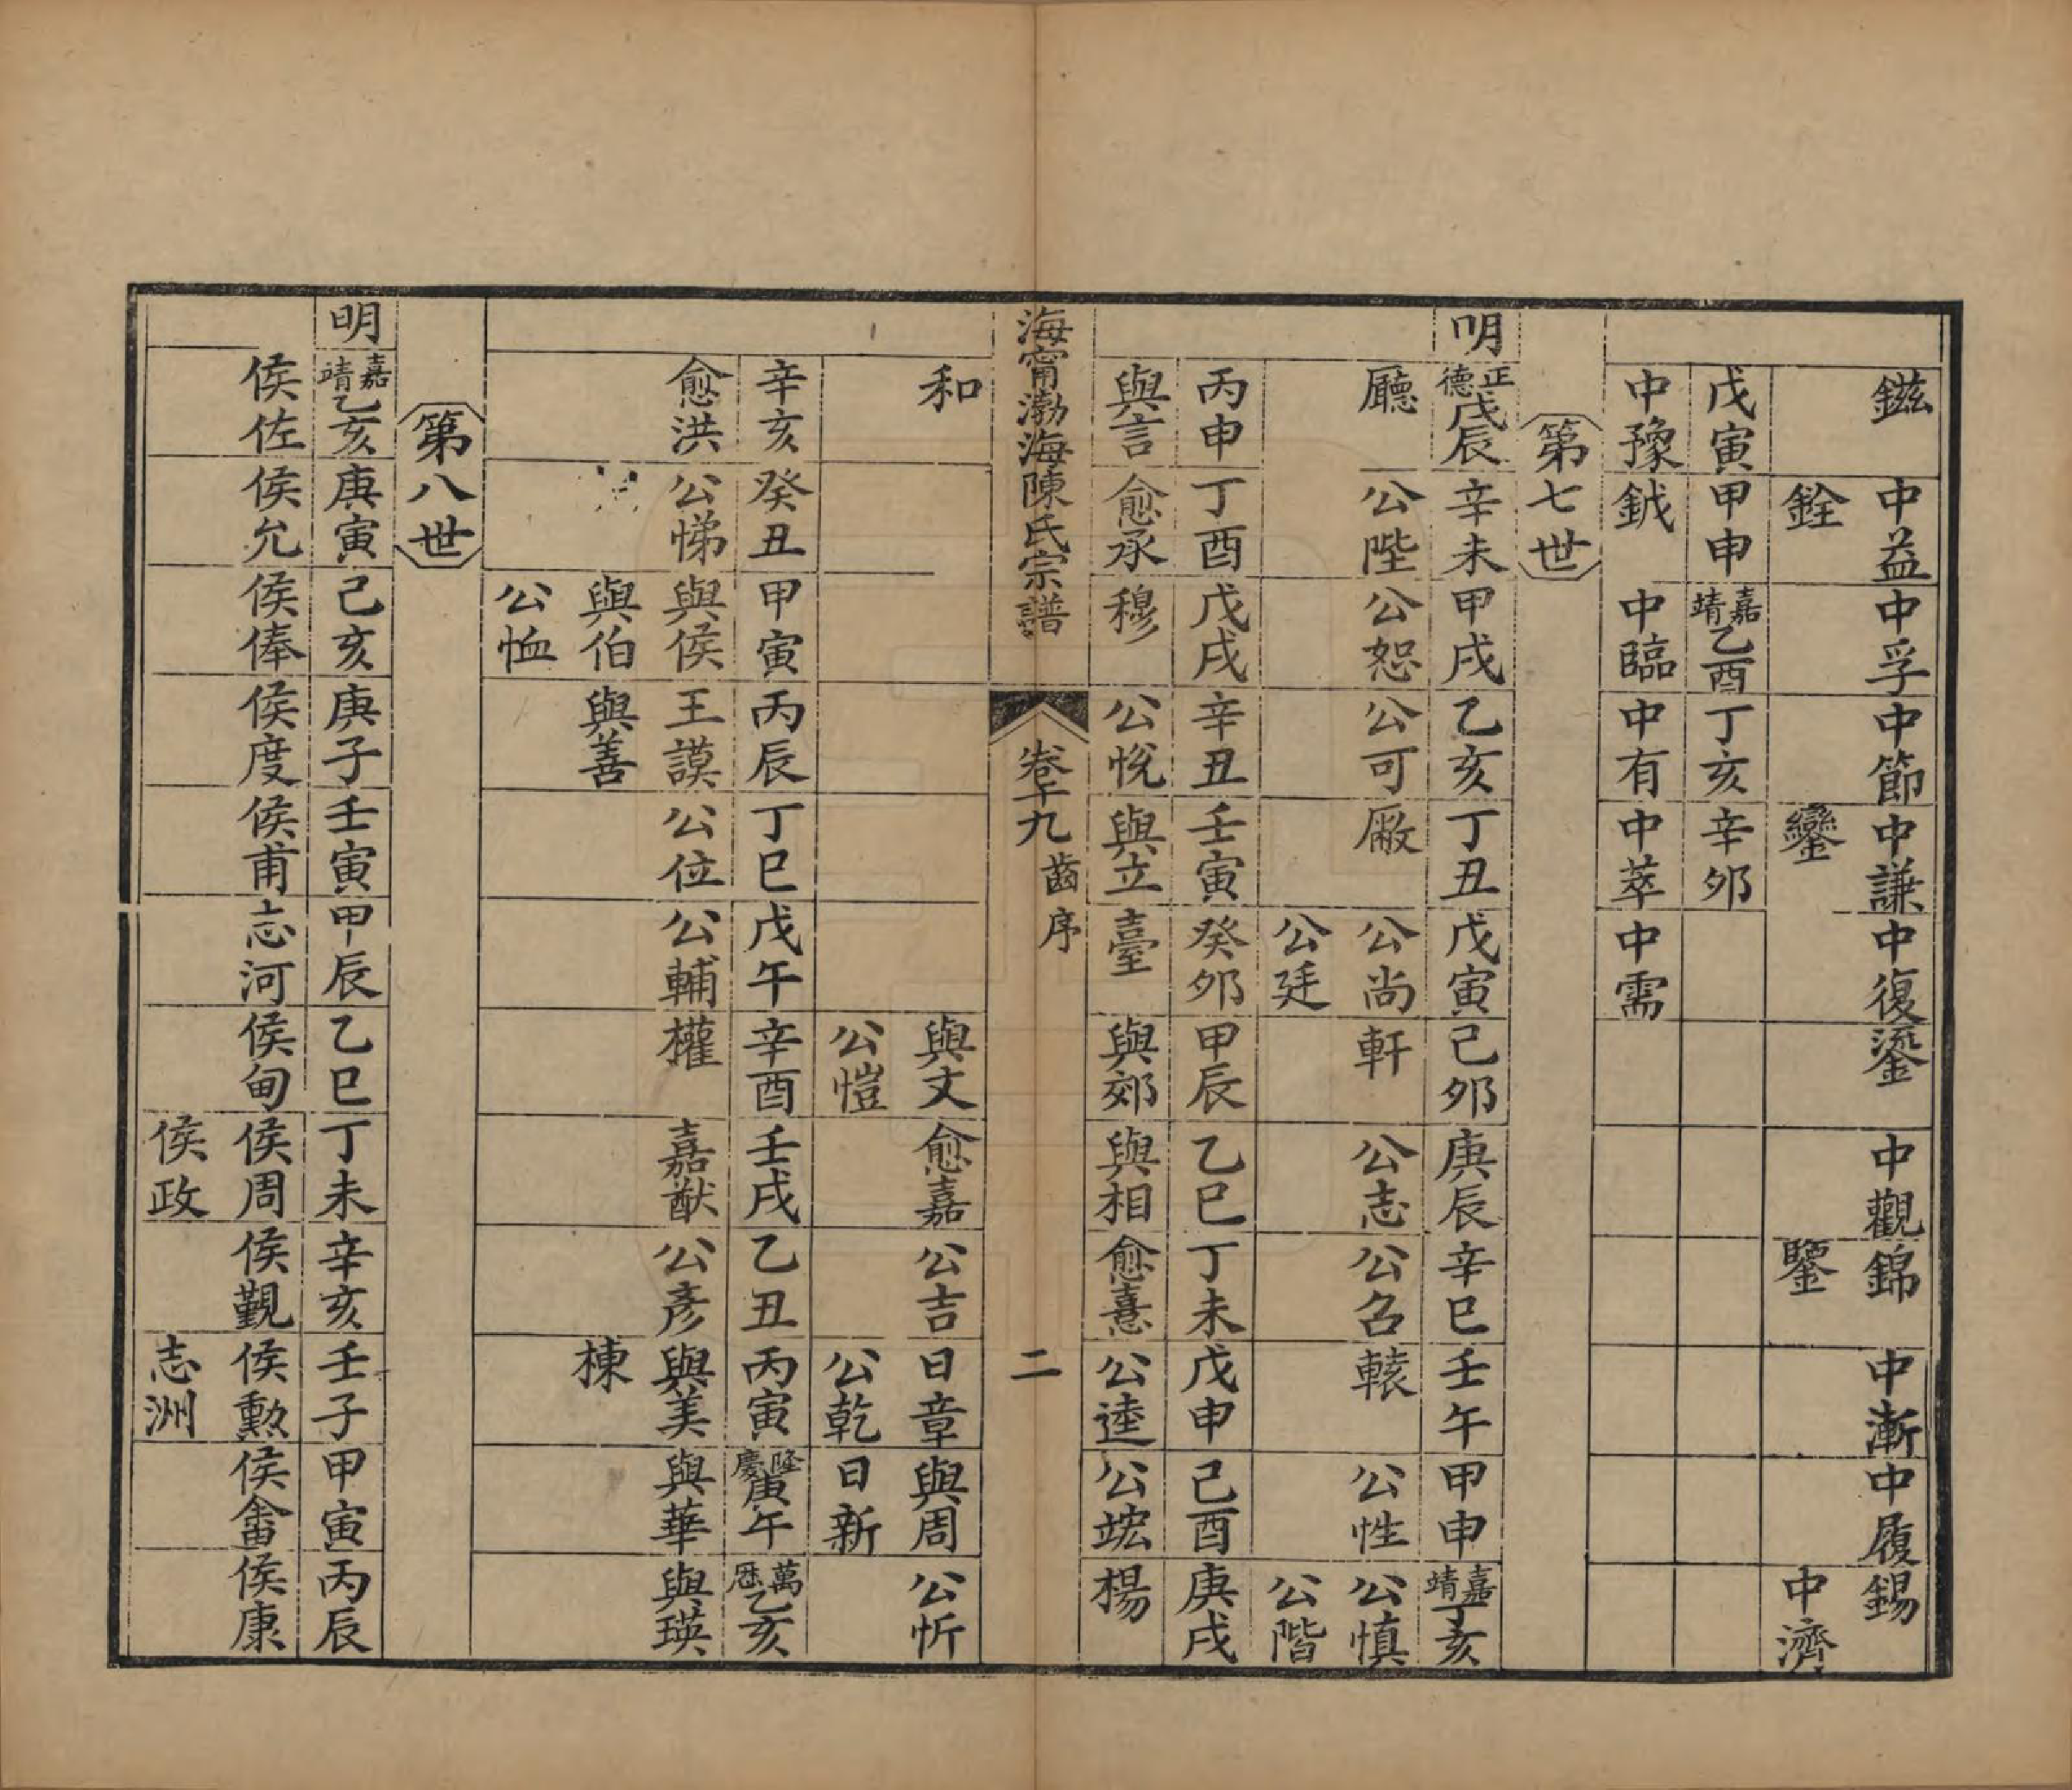 鎡 中益 中孚 中節 中謙 中復 鎏 中觀 錦 中漸 中履 錫
銓 鑾 鑒 中濟
戊寅 甲申 嘉靖乙酉 丁亥 辛夘
中豫 鉞 中臨 中有 中萃 中需
第七世
明 正德戊辰 辛未 甲戌 乙亥 丁丑 戊寅 己夘 庚辰 辛巳 壬午 甲申 嘉靖丁亥
廳 公陛 公恕 公可 廠 公尚 軒 公志 公名 轅 公性 公慎
公廷 公階
丙申 丁酉 戊戌 辛丑 壬寅 癸夘 甲辰 乙巳 丁未 戊申 己酉 庚戌
與言 愈承 穆 公悅 與立 臺 與郊 與相 愈憙 公逵 公竑 楊
海甯渤海陳氏宗譜 卷十九 齒序 二
和 與文 愈嘉 公吉 日章 與周 公忻
公愷 公乾 日新
辛亥 癸丑 甲寅 丙辰 丁巳 戊午 辛酉 壬戌 乙丑 丙寅 隆慶庚午 萬厯乙亥
愈洪 公悌 與侯 王謨 公位 公輔 權 嘉猷 公彥 與美 與華 與瑛
與伯 與善 棟
公恤
第八世
明 嘉靖乙亥 庚寅 己亥 庚子 壬寅 甲辰 乙巳 丁未 辛亥 壬子 甲寅 丙辰
侯佐 侯允 侯俸 侯度 侯甫 志河 侯甸 侯周 侯覲 侯勲 侯畬 侯康
侯政 志洲